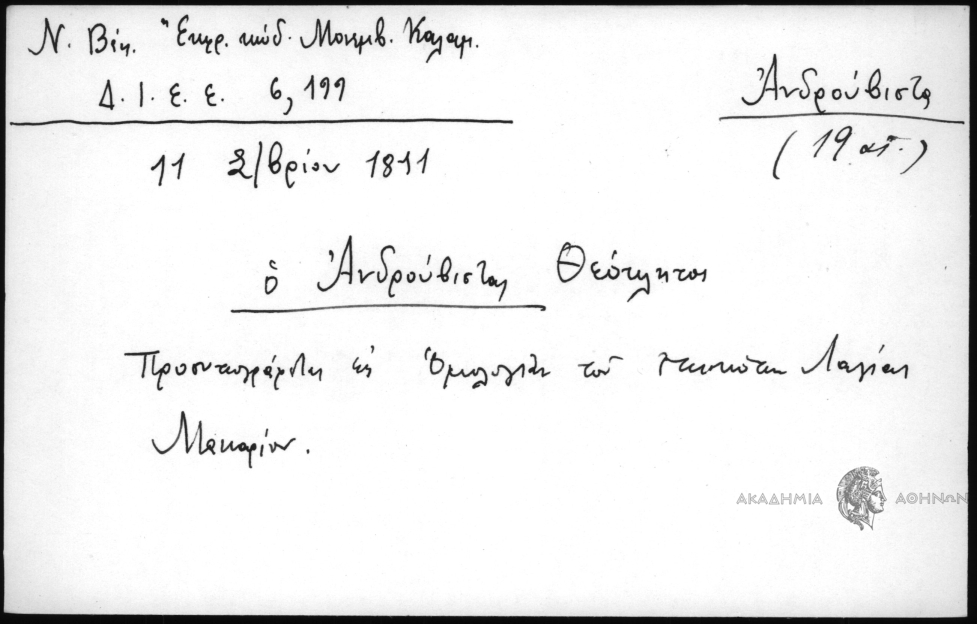 Ν. Βέη. "Εκφρ. κώδ. Μονεμβ. Καλαμ.
Δ. Ι. Ε. Ε. 6, 199
Ἀνδρούβιστα
(19 αἰ.)
11 2/βρίου 1811
ὁ Ἀνδρούβιστας Θεόκλητος
Προσυπογράφει εἰς Ὁμολογίαν τοῦ ἐπισκόπου Λαγίας
Μακαρίου.
ΑΚΑΔΗΜΙΑ ΑΘΗΝΩΝ